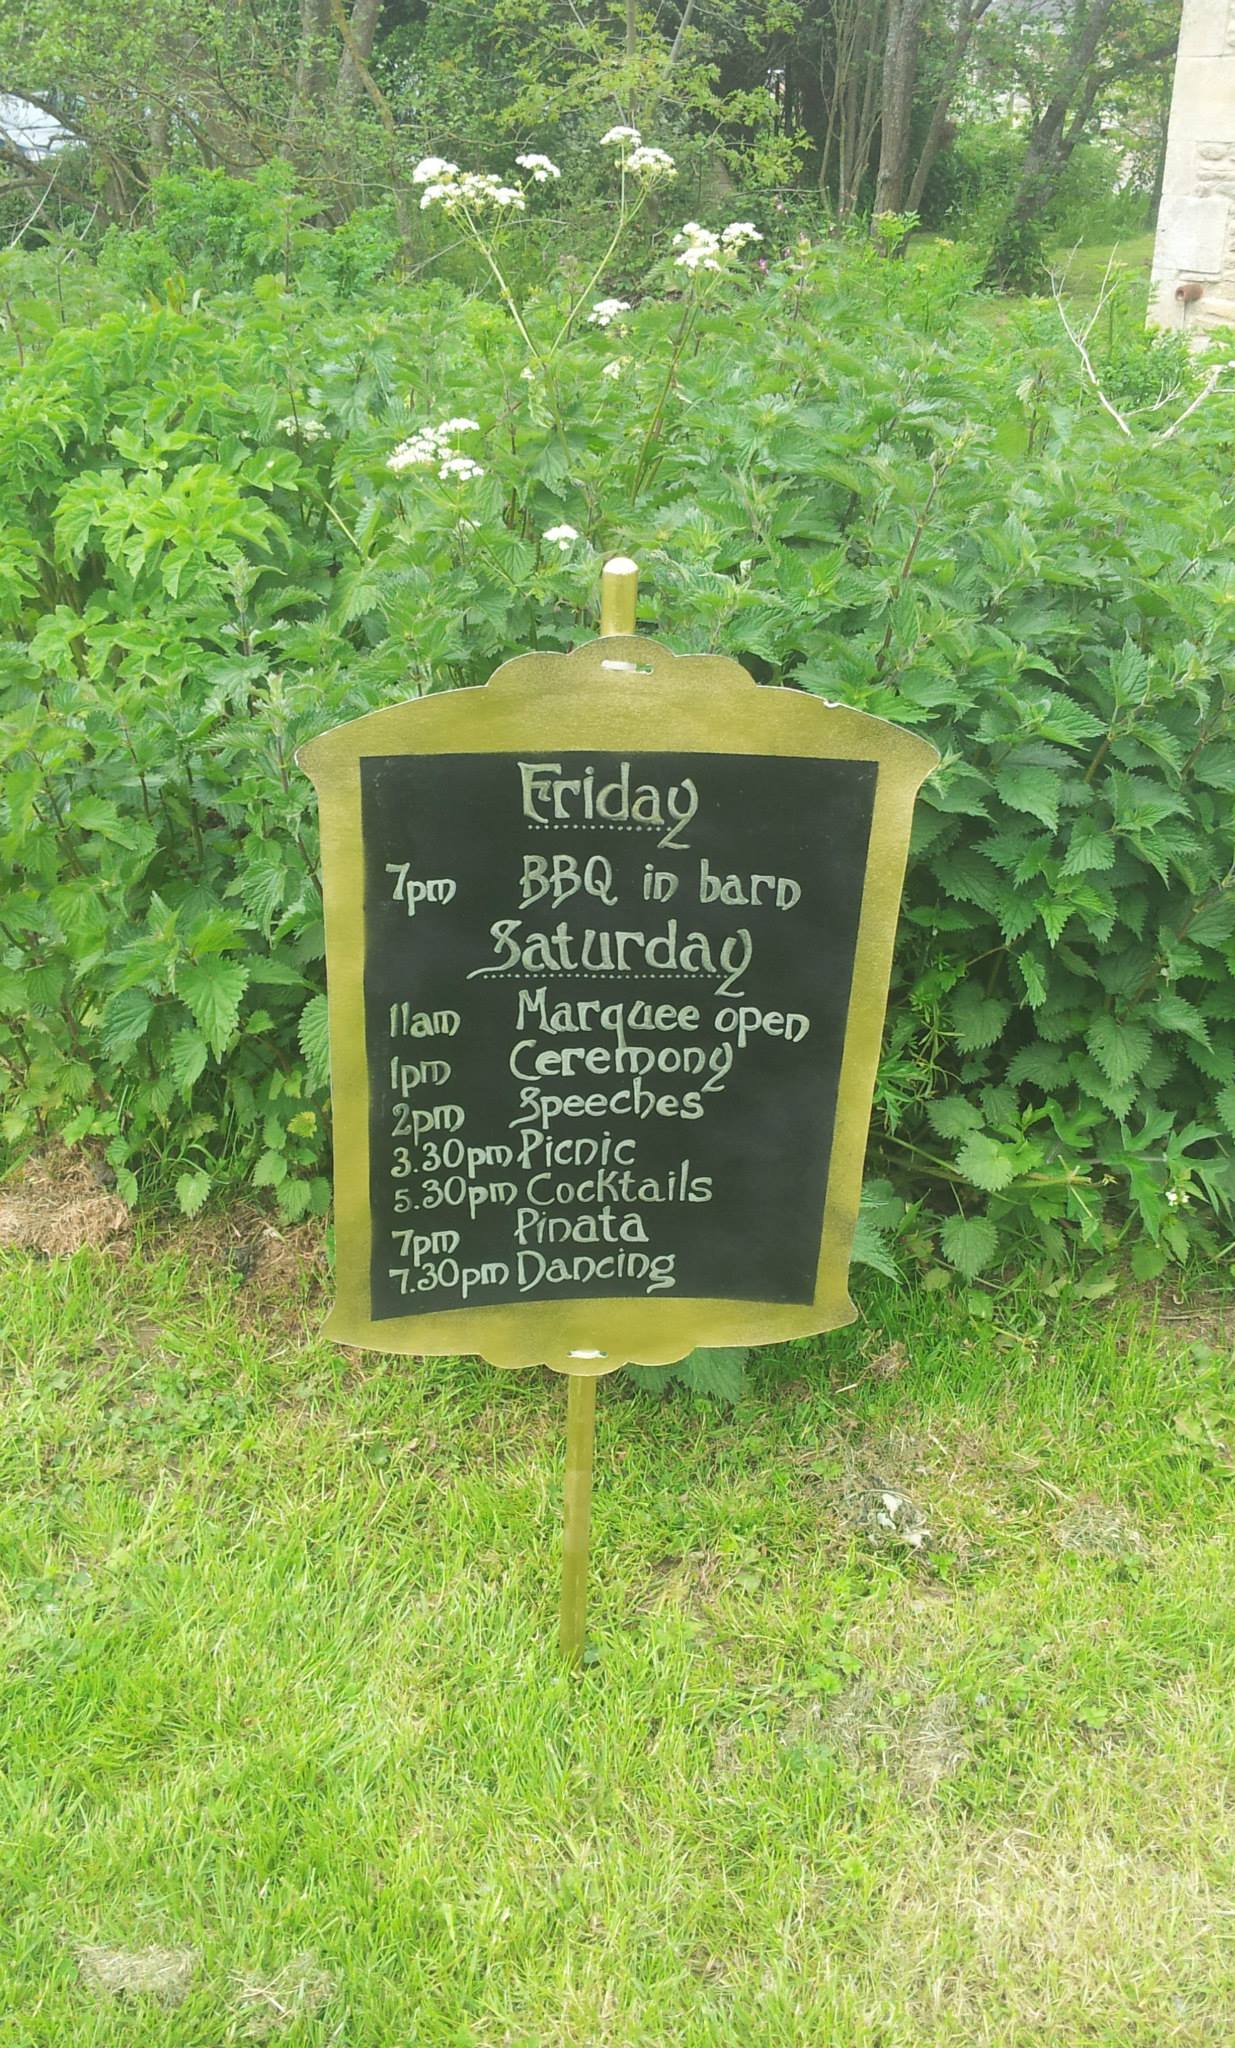 Friday
7pm BBQ in barn
Saturday
11am Marquee open
1pm Ceremony
2pm Speeches
3.30pm Picnic
5.30pm Cocktails
7pm Pinata
7.30pm Dancing